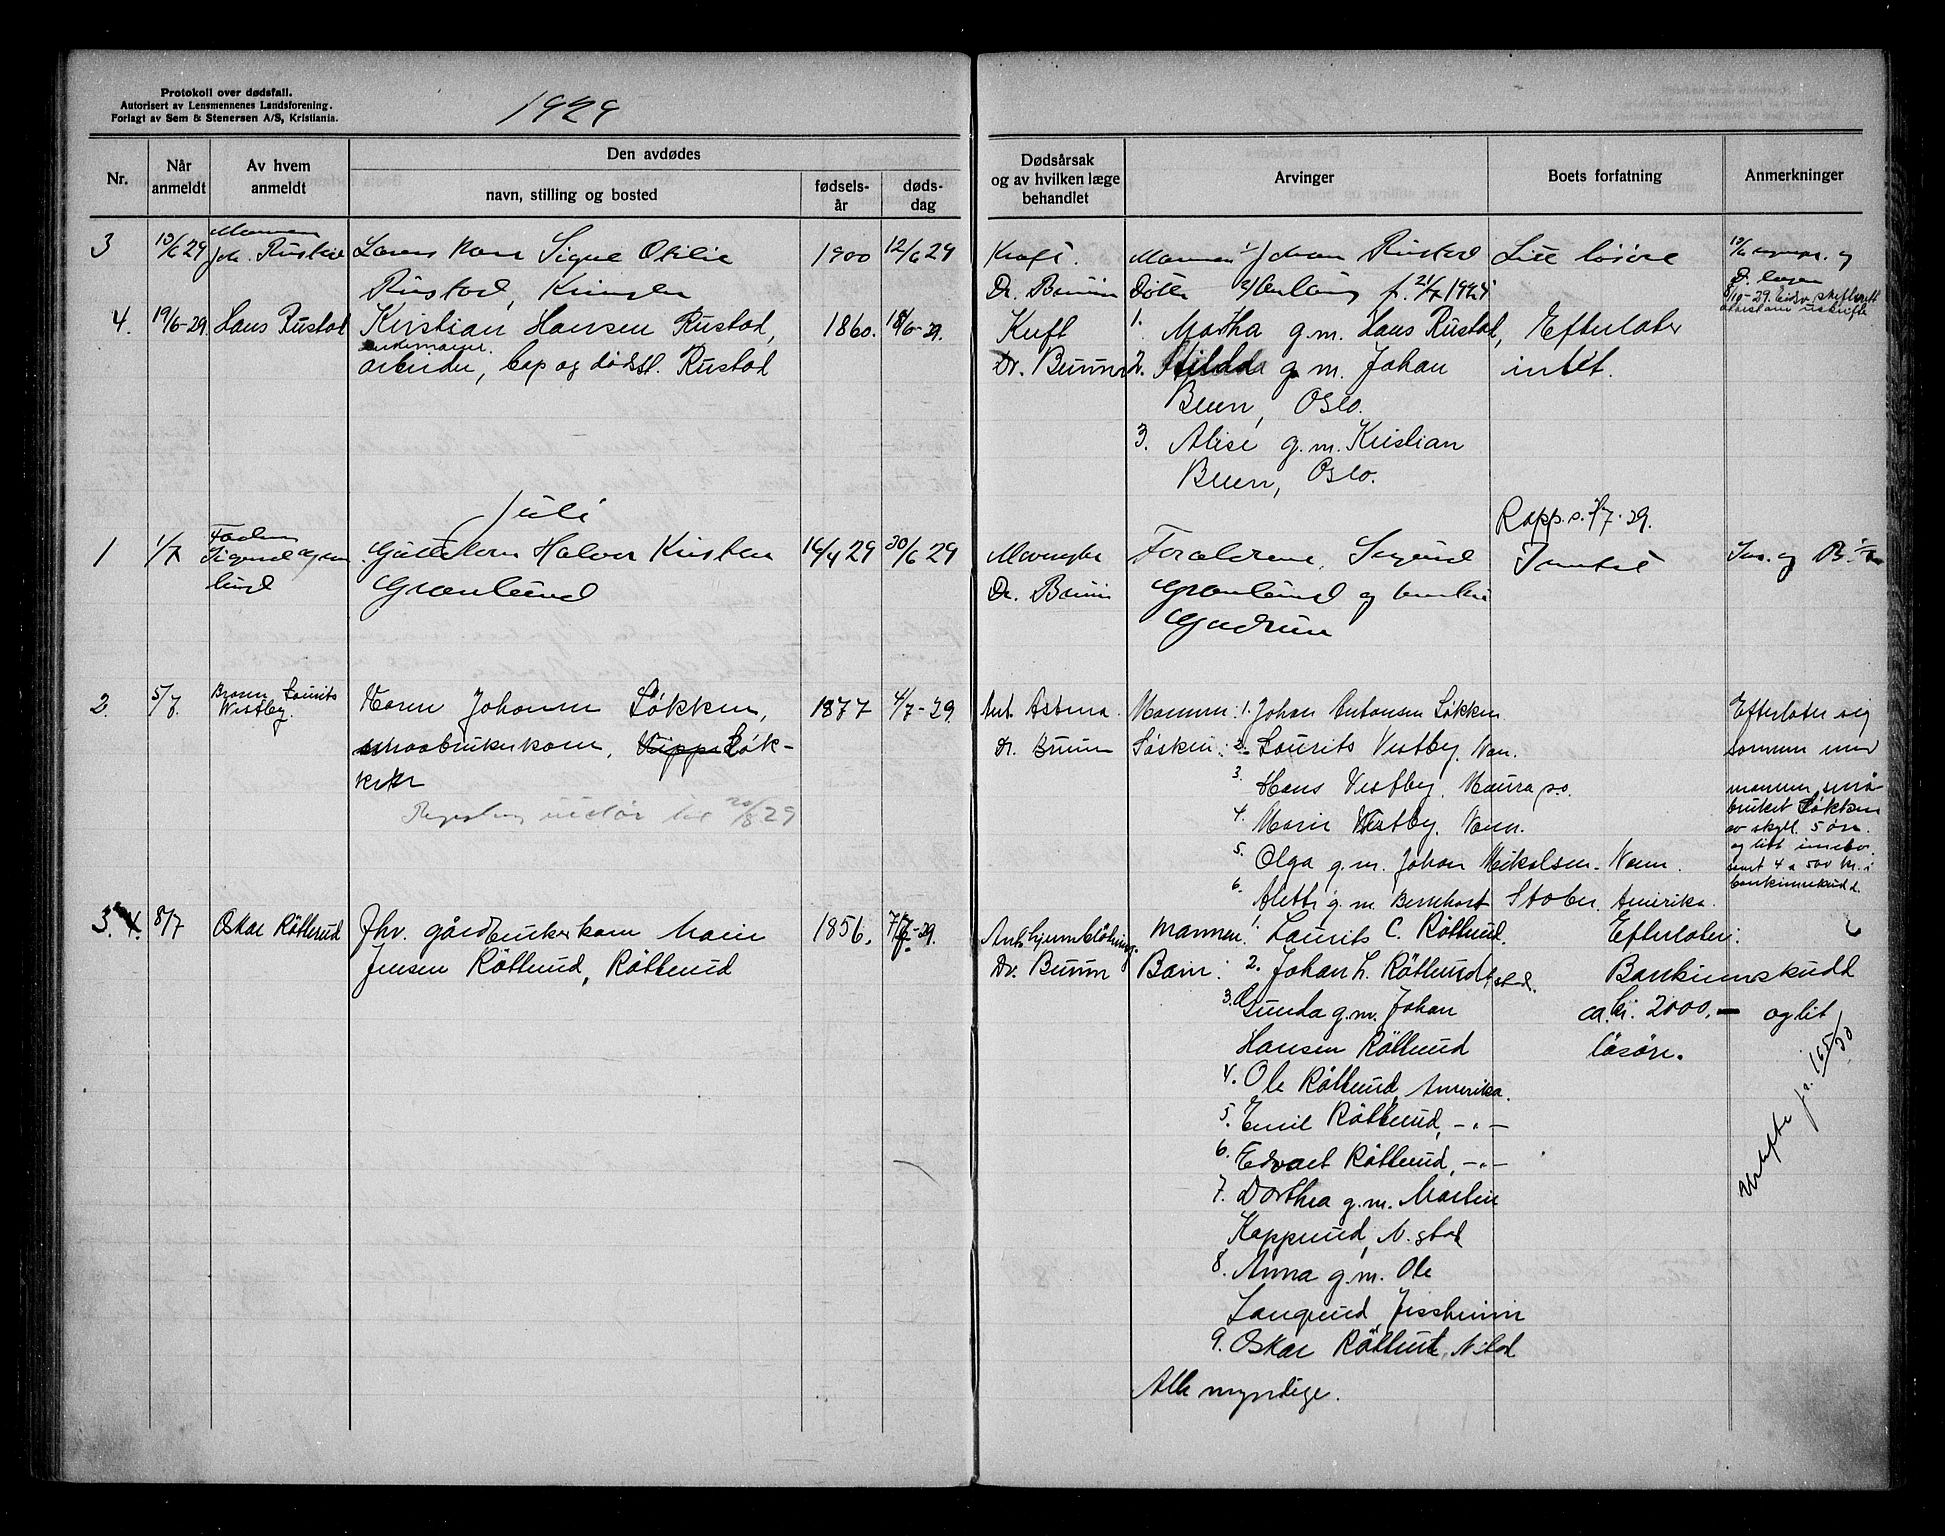 Protokoll over dødsfall.
Autorisert av Lensmennenes Landsforening.
Forlagt av Sem & Stenersen A/S, Kristiania.
1929
Nr.
Når
anmeldt
Av hvem
anmeldt
Den avdødes
navn, stilling og bosted
fødsels-
år
døds-
dag
Dødsårsak
og av hvilken læge
behandlet
Arvinger
Boets forfatning
Anmerkninger
3
13/6 29
Mannen
Joh. Rustad
Signe Otilie
Rustad,
1900
12/6 29
Kreft.
Dr. Bruun
Mannen 1/ Johan Rustad
f. 21/7 1924
Litt løsøre
4.
19/6-29.
Hans Rustad
Kristian Hansen Rustad,
enkemann
arbeider, bop og dødsst. Rustad
1860.
18/6-29.
Kreft
Dr. Bruun
1. Martha g.m. Hans Rustad,
2. Hilda g.m. Johan
Been, Oslo.
3. Alise g.m. Kristian
Been, Oslo.
Efterlater
intet.
Juli
1
1/7
Faderen
Sigurd Grøn
lund
Gutten Halvor Kristen
Grønlund
14/4 29
30/6 29
Dr. Bruun
Forældrene, Sigurd
Grønlund og hustru
Gudrun
Rapp. s. 1/7-29.
Intet
2.
5/7.
Broren Laurits
Westby.
Karen Johanne Løkken,
småbrukerkone, Løk-
ken
20/8 29
1877
4/7-29
Ant. Astma.
Dr. Bruun
Mannen: 1. Johan Antonsen Løkken
Søsken: 2. Laurits Vestby, Nan.
3. Hans Vestby, Maura p.o.
4. Marie Vestby, Nann.
5. Olga g.m. Johan Mikalsen. Nann.
6. Aletti g.m. Bernhart Stober, Amerika.
Efterlater sig
sammen med
mannen små
bruket Løkken
av skyll. 5 øre.
og litt innebo
samt 4 a 500 kr. i
bankinnskudd.
3. 4.
8/7
Oskar Røtterud
Fhv. gårdbrukerkone Marie
Jensen Røtterud, Røtterud
1856.
7/7-29.
Ant. hjerneblødning.
Dr. Bruun
Mannen: 1. Laurits C. Røtterud.
Barn: 2. Johan L. Røtterud, N.stad.
3. Gunda g.m. Johan
Hansen Røtterud
4. Ole Røtterud, Amerika.
5. Emil Røtterud, -"-
6. Edvart Røtterud, -"-
7. Dorthea g.m. Martin
Kopperud, N.stad
8. Anna g.m. Ole
Langerud, Jessheim
9. Oskar Røtterud, N.stad
Alle myndige.
Efterlater:
Bankinnskudd
ca. kr. 2000,- og lit
løsøre.
Uskifte